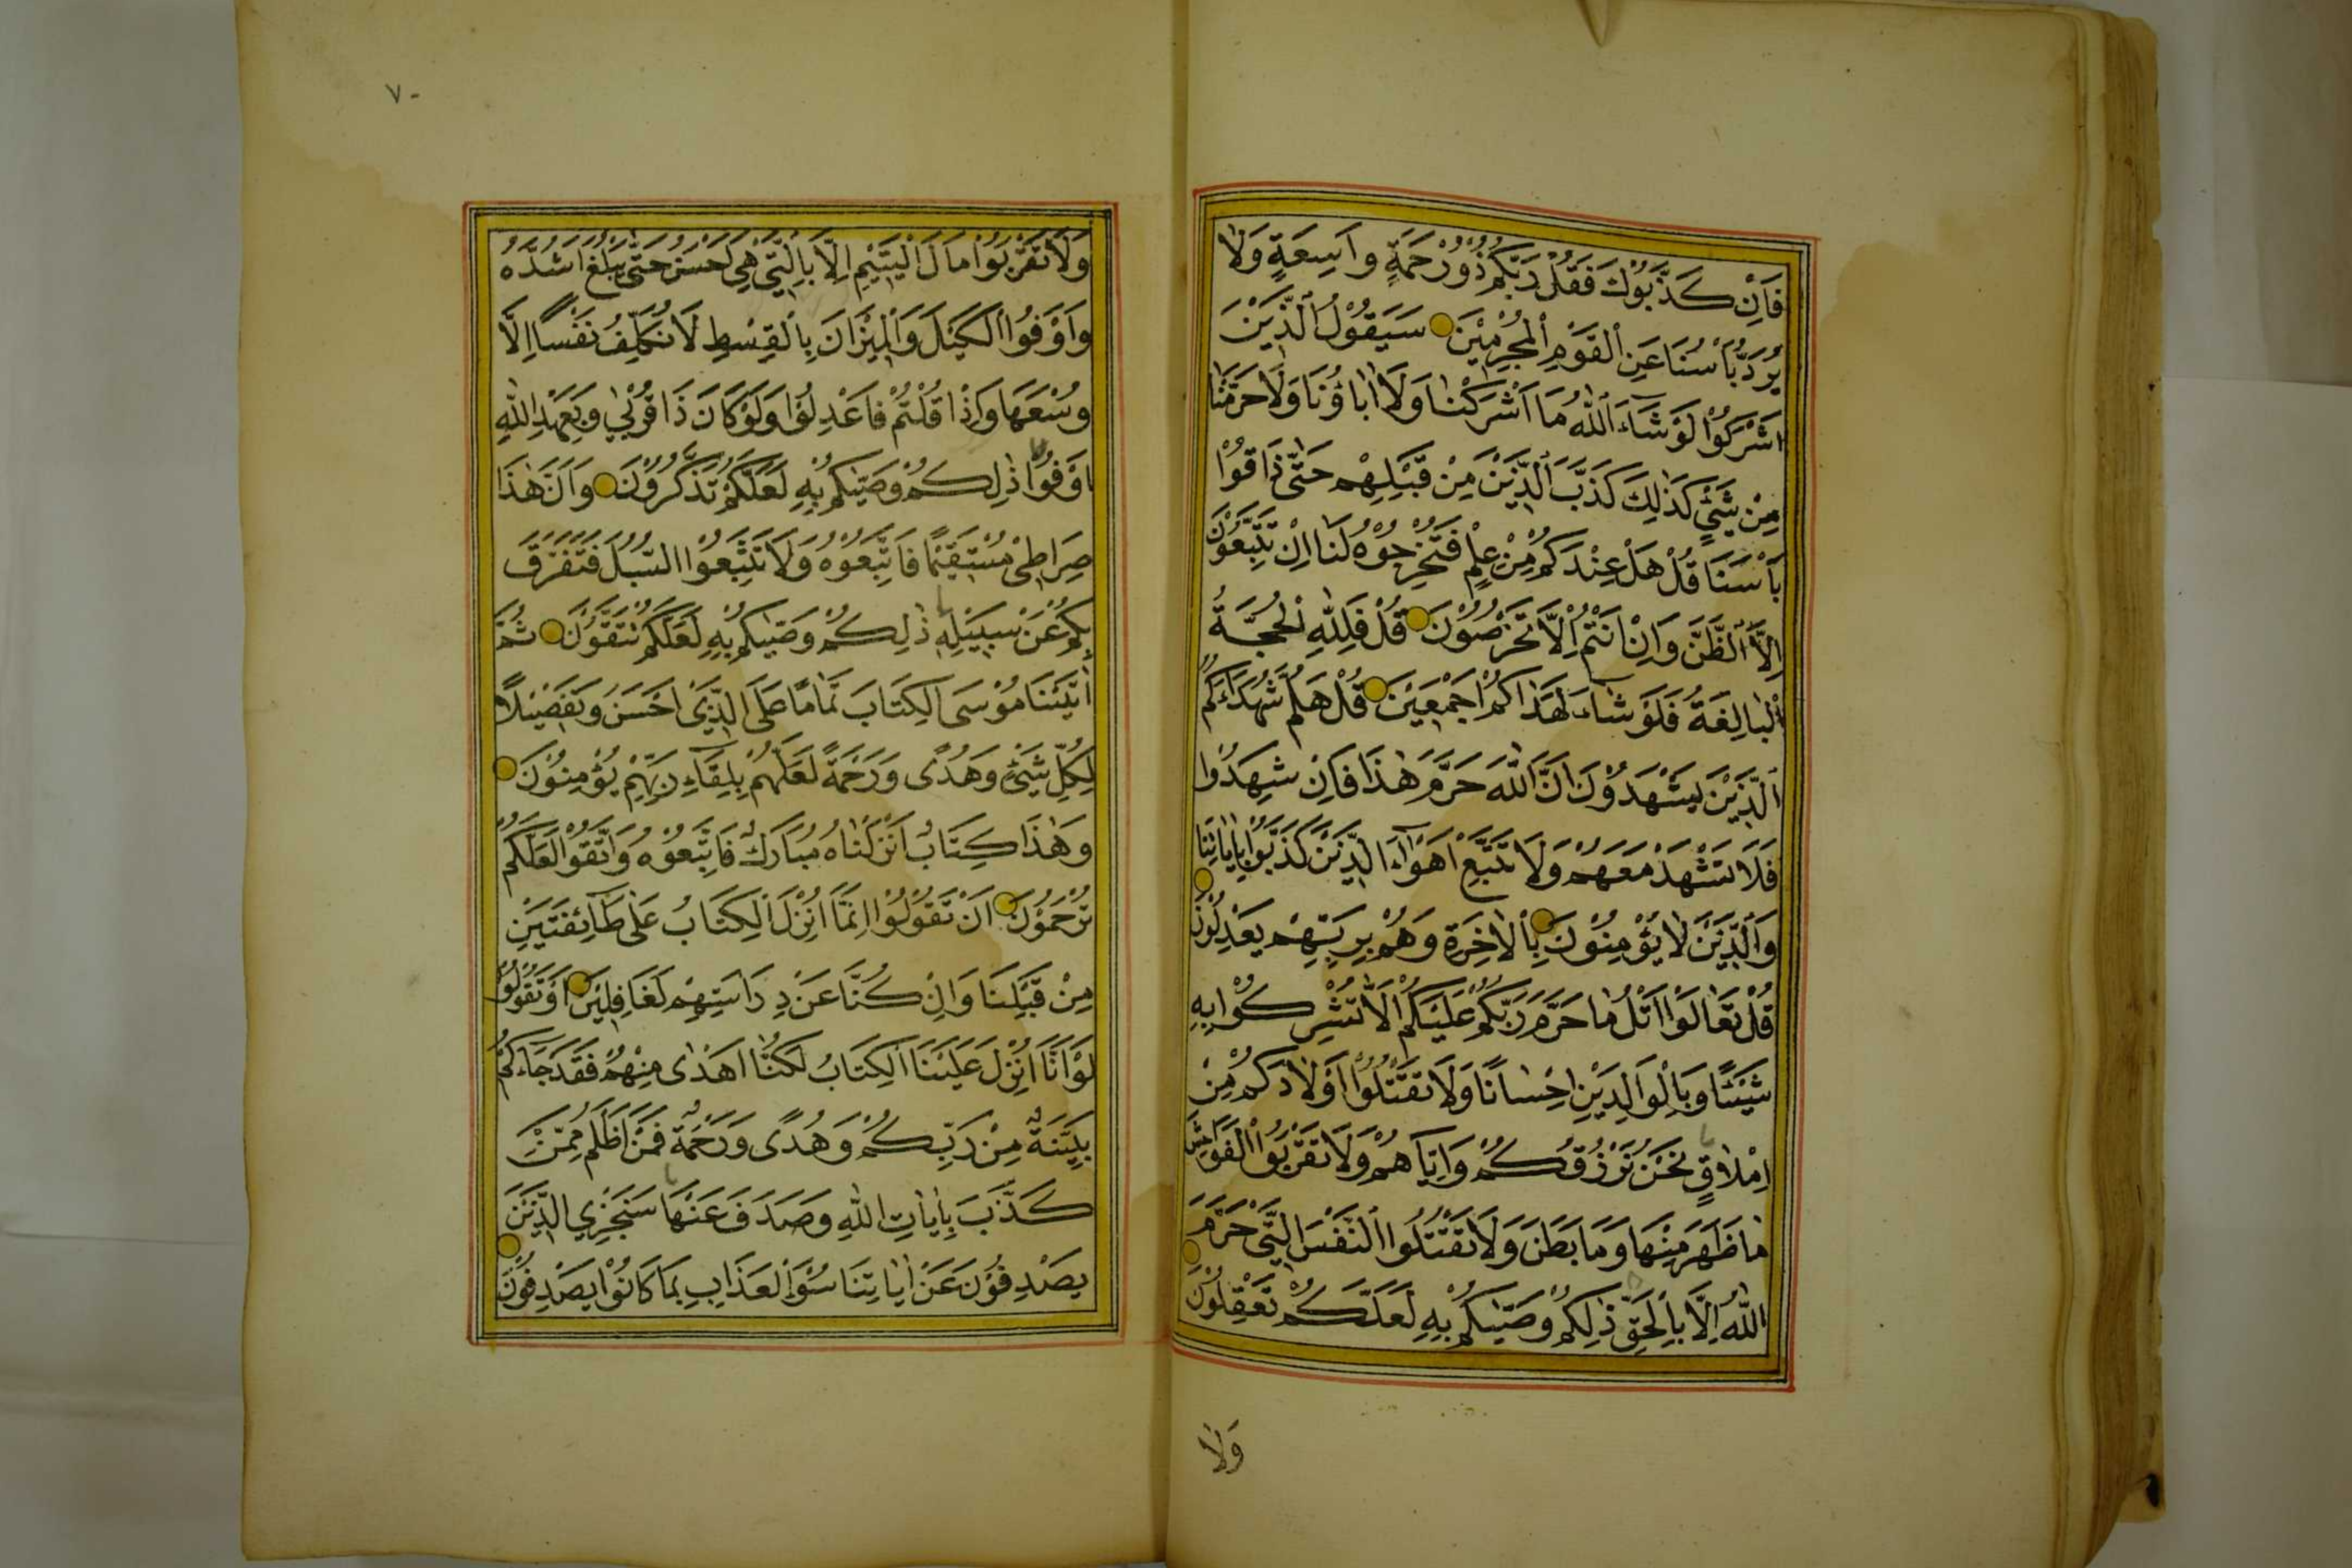 فَاِنْ كَذَّبُوْكَ فَقُلْ رَبُّكُمْ ذُوْرَحْمَةٍ وَاسِعَةٍ وَلَا
يُرَدُّ بَأْسُنَا عَنِ الْقَوْمِ الْمُجْرِمِيْنَ سَيَقُوْلُ الَّذِيْنَ
اَشْرَكُوْا لَوْ شَآءَ اللّٰهُ مَا اَشْرَكْنَا وَلَا اٰبَاؤُنَا وَلَا حَرَّمْنَا
مِنْ شَيْءٍ كَذٰلِكَ كَذَّبَ الَّذِيْنَ مِنْ قَبْلِهِمْ حَتّٰى ذَاقُوْا
بَأْسَنَا قُلْ هَلْ عِنْدَكُمْ مِنْ عِلْمٍ فَتُخْرِجُوْهُ لَنَا اِنْ تَتَّبِعُوْنَ
اِلَّا الظَّنَّ وَاِنْ اَنْتُمْ اِلَّا تَخْرُصُوْنَ قُلْ فَلِلّٰهِ الْحُجَّةُ
الْبَالِغَةُ فَلَوْ شَآءَ لَهَدٰاكُمْ اَجْمَعِيْنَ قُلْ هَلُمَّ شُهَدَاءَكُمُ
الَّذِيْنَ يَشْهَدُوْنَ اَنَّ اللّٰهَ حَرَّمَ هٰذَا فَاِنْ شَهِدُوْا
فَلَا تَشْهَدْ مَعَهُمْ وَلَا تَتَّبِعْ اَهْوَآءَ الَّذِيْنَ كَذَّبُوْا بِاٰيَاتِنَا
وَالَّذِيْنَ لَا يُؤْمِنُوْنَ بِالْاٰخِرَةِ وَهُمْ بِرَبِّهِمْ يَعْدِلُوْنَ
قُلْ تَعَالَوْا اَتْلُ مَا حَرَّمَ رَبُّكُمْ عَلَيْكُمْ اَلَّا تُشْرِكُوْا بِهِ
شَيْئًا وَبِالْوَالِدَيْنِ اِحْسَانًا وَلَا تَقْتُلُوْا اَوْلَادَكُمْ مِنْ
اِمْلَاقٍ نَحْنُ نَرْزُقُكُمْ وَاِيَّاهُمْ وَلَا تَقْرَبُوا الْفَوَاحِشَ
مَا ظَهَرَ مِنْهَا وَمَا بَطَنَ وَلَا تَقْتُلُوا النَّفْسَ الَّتِيْ حَرَّمَ
اللّٰهُ اِلَّا بِالْحَقِّ ذٰلِكُمْ وَصّٰيكُمْ بِهِ لَعَلَّكُمْ تَعْقِلُوْنَ
وَلَا
٧٠
وَلَا تَقْرَبُوْا مَالَ الْيَتِيْمِ اِلَّا بِالَّتِيْ هِيَ اَحْسَنُ حَتّٰى يَبْلُغَ اَشُدَّهُ
وَاَوْفُوا الْكَيْلَ وَالْمِيْزَانَ بِالْقِسْطِ لَا نُكَلِّفُ نَفْسًا اِلَّا
وُسْعَهَا وَاِذَا قُلْتُمْ فَاعْدِلُوْا وَلَوْ كَانَ ذَا قُرْبٰى وَبِعَهْدِ اللّٰهِ
اَوْفُوْا ذٰلِكُمْ وَصّٰيكُمْ بِهِ لَعَلَّكُمْ تَذَكَّرُوْنَ وَاَنَّ هٰذَا
صِرَاطِيْ مُسْتَقِيْمًا فَاتَّبِعُوْهُ وَلَا تَتَّبِعُوا السُّبُلَ فَتَفَرَّقَ
بِكُمْ عَنْ سَبِيْلِهِ ذٰلِكُمْ وَصّٰيكُمْ بِهِ لَعَلَّكُمْ تَتَّقُوْنَ ثُمَّ
اٰتَيْنَا مُوْسَى الْكِتَابَ تَمَامًا عَلَى الَّذِيْ اَحْسَنَ وَتَفْصِيْلًا
لِكُلِّ شَيْءٍ وَهُدًى وَرَحْمَةً لَعَلَّهُمْ بِلِقَآءِ رَبِّهِمْ يُؤْمِنُوْنَ
وَهٰذَا كِتَابٌ اَنْزَلْنَاهُ مُبَارَكٌ فَاتَّبِعُوْهُ وَاتَّقُوْا لَعَلَّكُمْ
تُرْحَمُوْنَ اَنْ تَقُوْلُوْا اِنَّمَا اُنْزِلَ الْكِتَابُ عَلٰى طَآئِفَتَيْنِ
مِنْ قَبْلِنَا وَاِنْ كُنَّا عَنْ دِرَاسَتِهِمْ لَغَافِلِيْنَ اَوْ تَقُوْلُوْا
لَوْ اَنَّا اُنْزِلَ عَلَيْنَا الْكِتَابُ لَكُنَّا اَهْدٰى مِنْهُمْ فَقَدْ جَآءَكُمْ
بَيِّنَةٌ مِنْ رَبِّكُمْ وَهُدًى وَرَحْمَةٌ فَمَنْ اَظْلَمُ مِمَّنْ
كَذَّبَ بِاٰيَاتِ اللّٰهِ وَصَدَفَ عَنْهَا سَنَجْزِي الَّذِيْنَ
يَصْدِفُوْنَ عَنْ اٰيَاتِنَا سُوْءَ الْعَذَابِ بِمَا كَانُوْا يَصْدِفُوْنَ